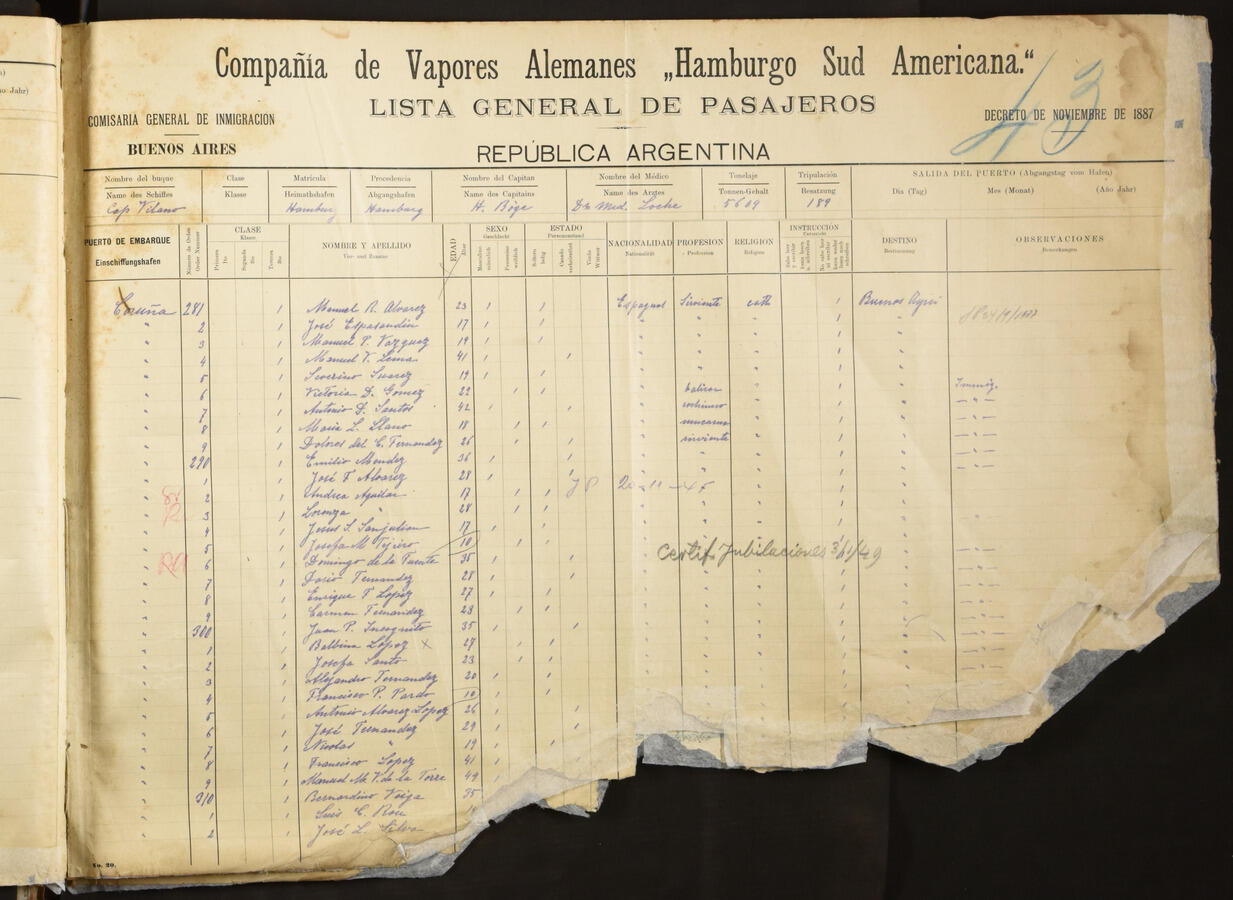 Compañía de Vapores Alemanes „Hamburgo Sud Americana.“
LISTA GENERAL DE PASAJEROS
COMISARIA GENERAL DE INMIGRACIÓN
BUENOS AIRES
DECRETO DE NOVIEMBRE DE 1887
43
REPÚBLICA ARGENTINA
Nombre del buque Clase Matrícula Procedencia Nombre del Capitan Nombre del Médico Tonelaje Tripulación SALIDA DEL PUERTO (Abgangstag vom Hafen)
Name des Schiffes Klasse Heimathshafen Abgangshafen Name des Capitains Name des Arztes Tonnen-Gehalt Besatzung Dia (Tag) Mes (Monat) (Año Jahr)
Cap Vilano Hamburg Hamburg H. Böge Dr. Med. Loche 5609 189
PUERTO DE EMBARQUE Einschiffungshafen
Número de Orden
CLASE Klasse
Primera Segunda Tercera
NOMBRE Y APELLIDO
Vor- und Zuname
EDAD
SEXO Geschlecht
ESTADO Personenstand
NACIONALIDAD Nationalität
PROFESION Profession
RELIGION Religion
INSTRUCCIÓN
DESTINO Bestimmung
OBSERVACIONES Bemerkungen
Coruña 281 1 Manuel R. Alvarez 23 1 1 Español Sirviente cath 1 Buenos Ayres
" 2 1 José Espasandin 17 1 1 " " " 1 "
" 3 1 Manuel P. Vazquez 19 1 1 " " " 1 "
" 4 1 Manuel V. Lema 41 1 1 " " " 1 "
" 5 1 Severino Suarez 19 1 1 " " " 1 "
" 6 1 Victoria D. Gomez 22 1 1 " " 1 " Inmig.
" 7 1 Antonio D. Santos 42 1 1 " " 1 " - " -
" 8 1 Maria L. Llano 18 1 1 " " 1 " - " -
" 9 1 Dolores del C. Fernandez 26 1 1 " sirviente " 1 " - " -
" 290 1 Emilio Mendez 36 1 1 " " " 1 " - " -
" 1 1 José F. Alvarez 28 1 1 " " " 1 "
" 2 1 Andrea Aguilar 17 1 1 " " " 1 "
" 3 1 Lorenza " 24 1 1 " " " 1 "
" 4 1 Jesus S. Sanjulian 17 1 1 " " " 1 "
" 5 1 Josefa M. Tejeiro 10 1 1 " " " 1 " - " -
" 6 1 Domingo de la Fuente 35 1 1 " " " 1 " - " -
certif. Jubilaciones 3/11/49
" 7 1 Dario Fernandez 28 1 1 " " " 1 " - " -
" 8 1 Enrique F. Lopez 27 1 1 " " " 1 " - " -
" 9 1 Carmen Fernandez 23 1 1 " " " 1 " - " -
" 300 1 Juan P. Incognito 35 1 1 " " " 1 " - " -
" 1 1 Balbina Lopez x 27 1 1 " " " 1 "
" 2 1 Josefa Santo 23 1 1
" 3 1 Alejandro Fernandez 20 1 1
" 4 1 Francisco P. Pardo 10 1 1
" 5 1 Antonio Alvarez Lopez 26 1 1
" 6 1 José Fernandez 29 1 1
" 7 1 Nicolas " 19 1 1
" 8 1 Francisco Lopez 41 1 1
" 9 1 Manuel M. V. de la Torre 49 1
" 310 1 Bernardino Veiga 35
" 1 1 Luis C.
" 2 1 José L. Silva
No. 20.